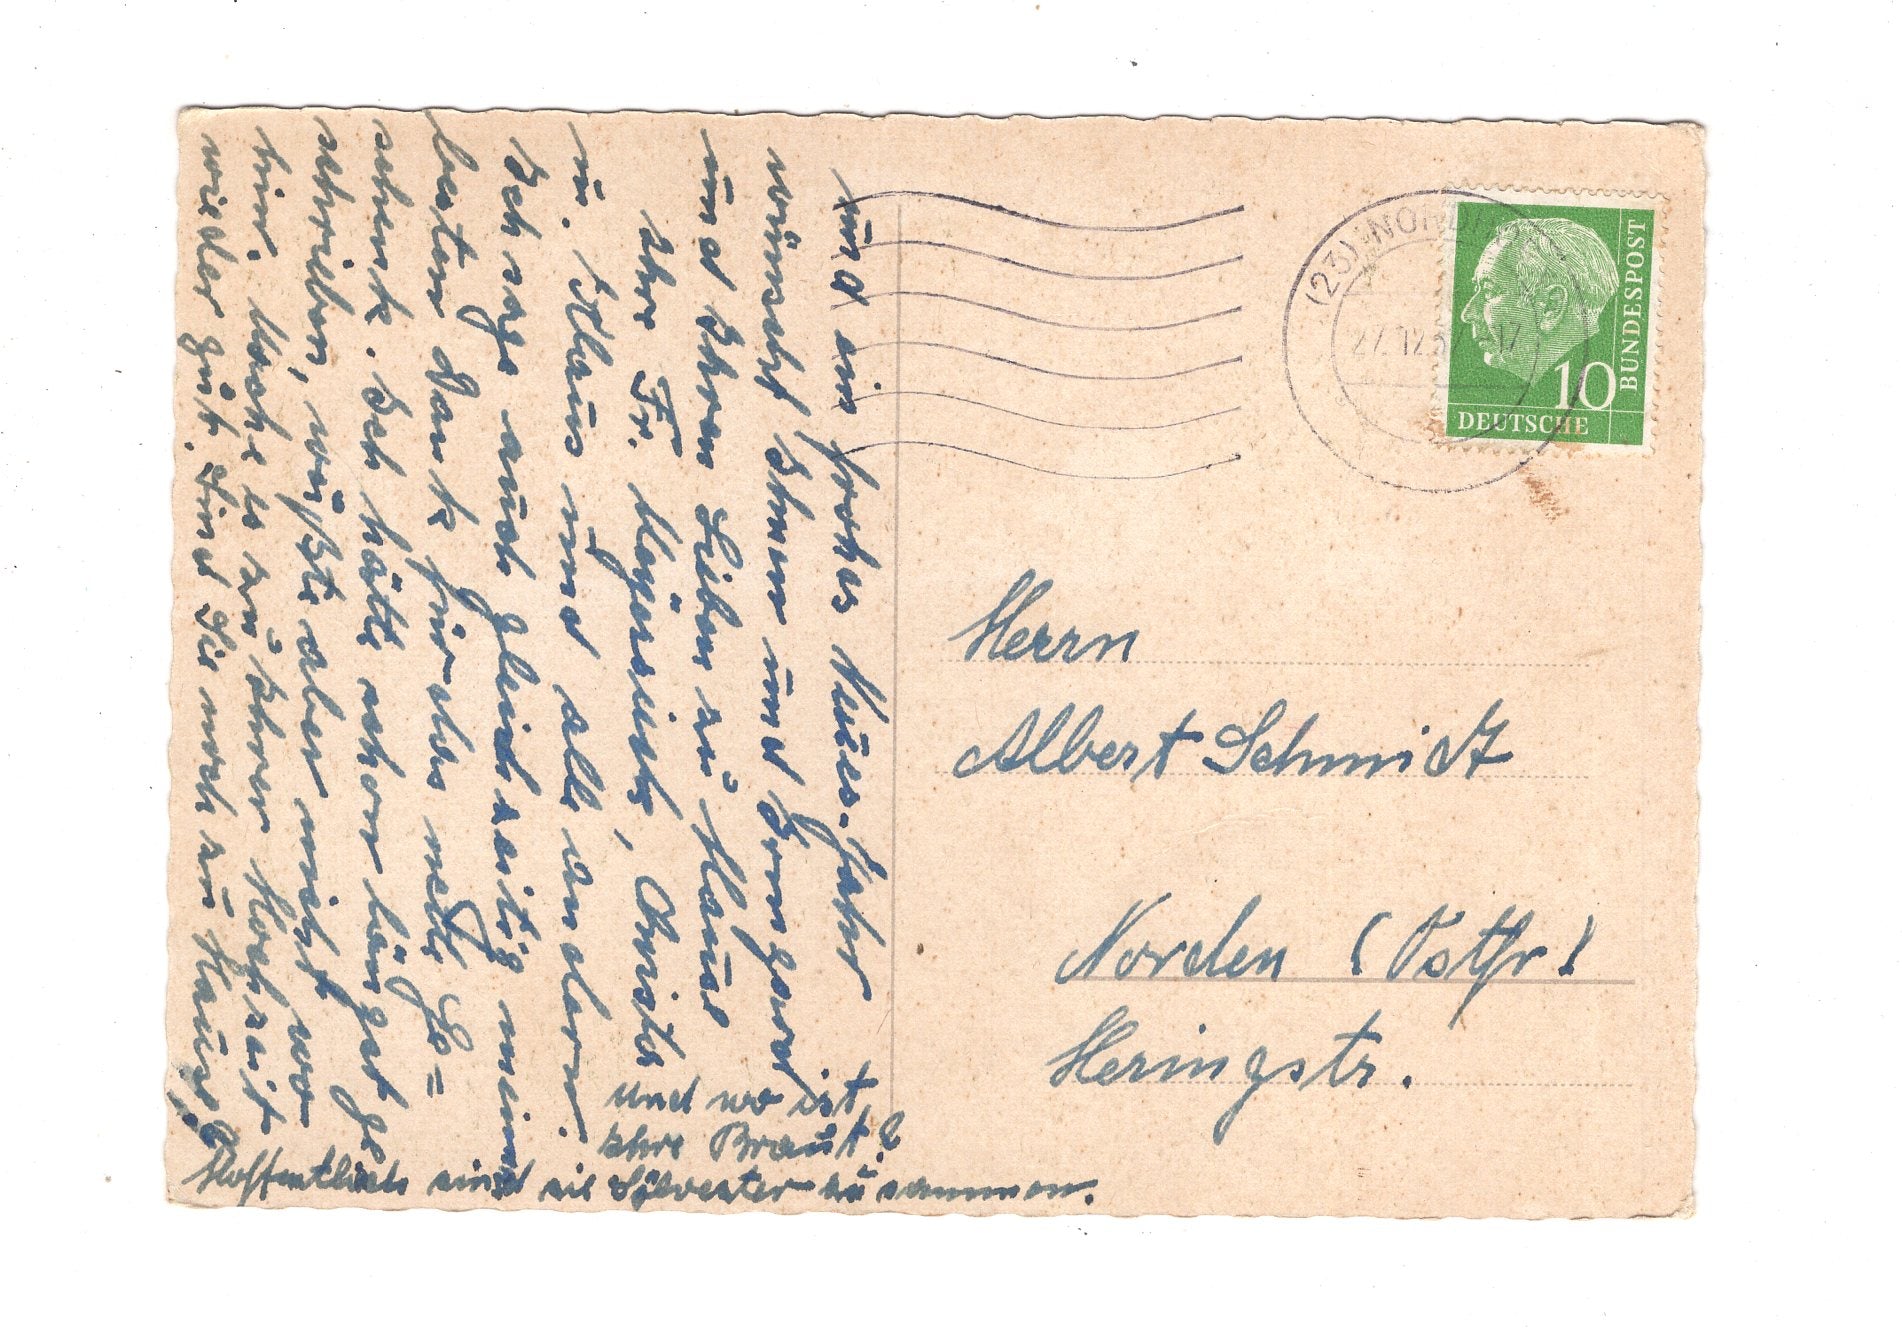 und ein frohes Neues-Jahr
wünscht Ihnen und Irmgard
und Ihren Lieben zu Haus
Ihre Fr.
u. Klaus und alle andern.
Ich sage auch gleichzeitig meinen
besten Dank für das nette Ge=
schenk. Ich hätte schon längst ge
schrieben, wußte aber nicht wo
hin. Wie es zu Ihrer Hochzeit
wieder gut. Sind Sie noch zu Hause?
und wo ist
Ihre Braut?
Hoffentlich sind sie Sylvester zusammen.
(23) NORDEN
27.12.57 17
DEUTSCHE
BUNDESPOST
10
Herrn
Albert Schmidt
Norden (Ostfr)
Heringstr.